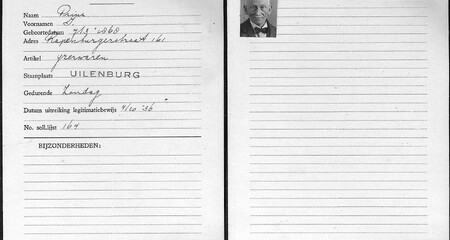 Naam Prins
Voornamen D.
Geboortedatum 7/3 '1868
Adres Rapenburgerstraat 161
Artikel Yzerwaren
Standplaats UILENBURG
Gedurende Zondag
Datum uitreiking legitimatiebewijs 9/10 '36
No. soll.lijst 164
BIJZONDERHEDEN: